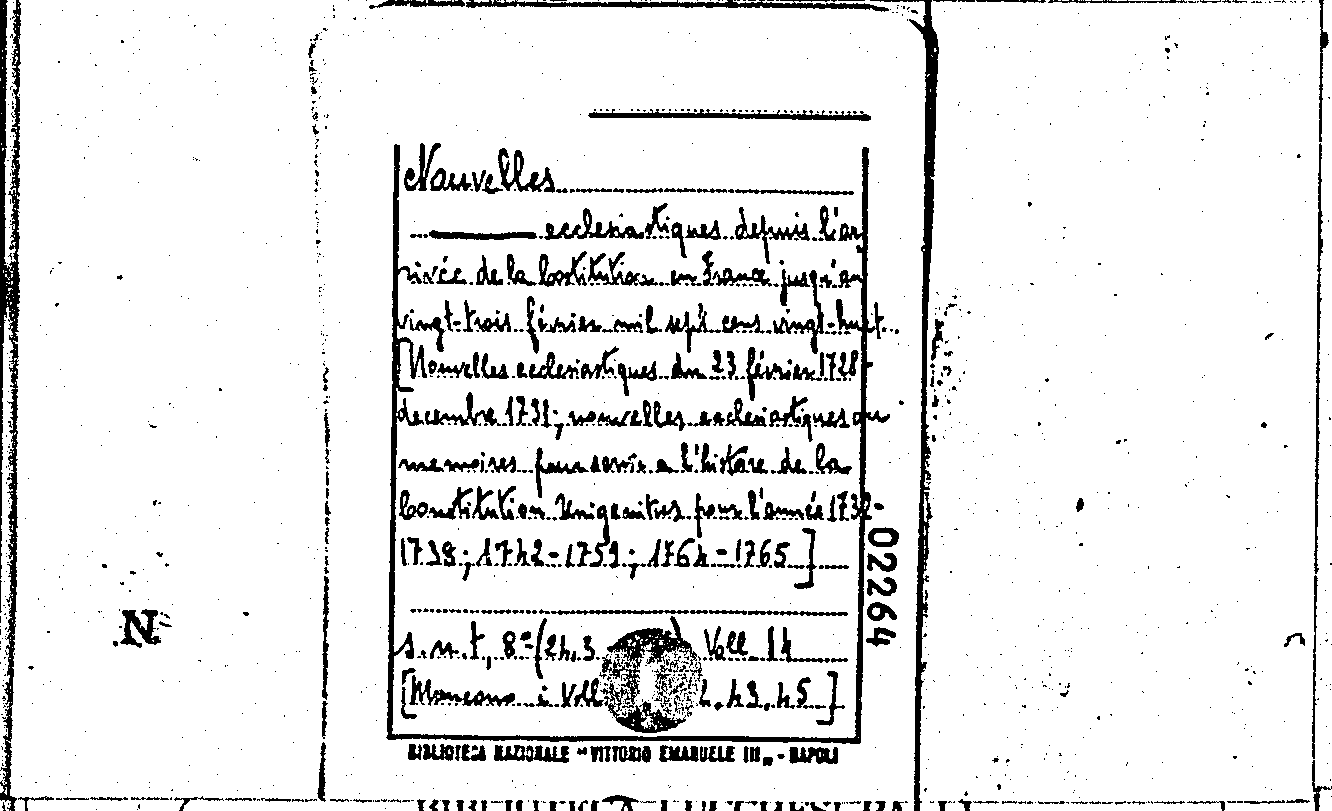 Nouvelles
ecclesiastiques depuis l'ar
rivée de la Costitution en France jusqu'au
vingt-trois février mil sept cens vingt-huit.
[Nouvelles ecclesiastiques du 23 février 1728-
decembre 1731; nouvelles ecclesiastiques ou
memoires pour servir a l'histore de la
Constitution Unigenitus pour l'année 1732-
1738; 1742-1759; 1764-1765]
s.n.t, 8° (24,3 ) Voll 14
[Mancano i Voll 43,45]
02264
N
BIBLIOTECA NAZIONALE "VITTORIO EMANUELE III" - NAPOLI
BIBLIOTECA LUCCHESI PALLI